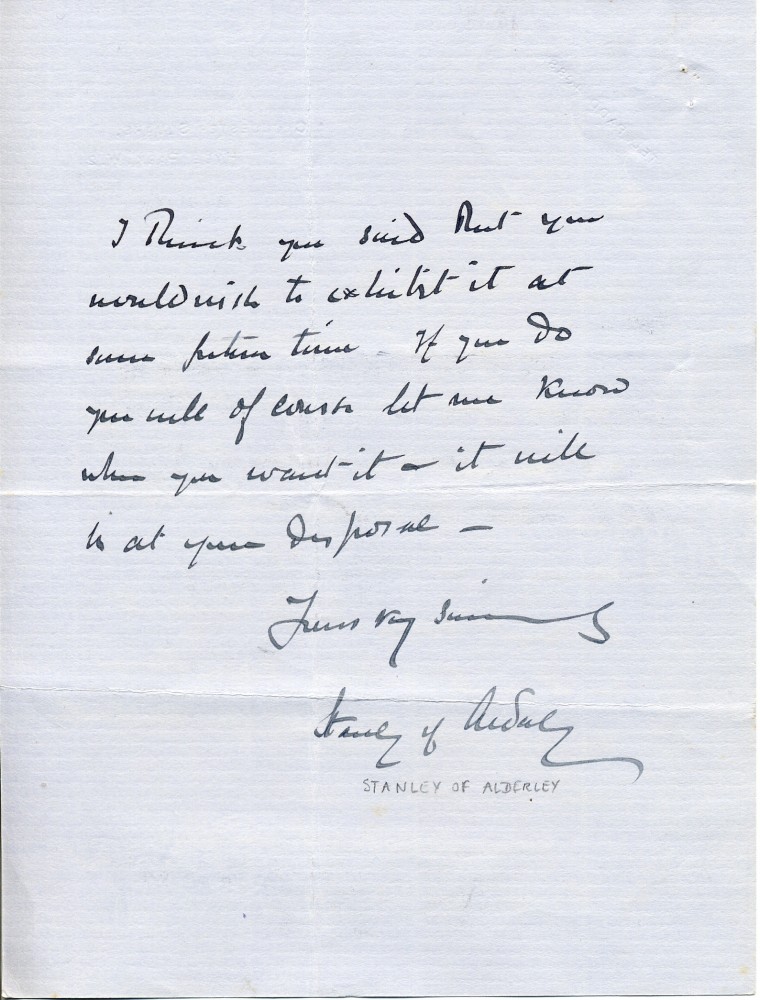 I think you said that you
would wish to exhibit it at
some future time. If you do
you will of course let me know
when you want it & it will
be at your disposal —
Yours very sincerely
Stanley of Alderley
STANLEY OF ALDERLEY